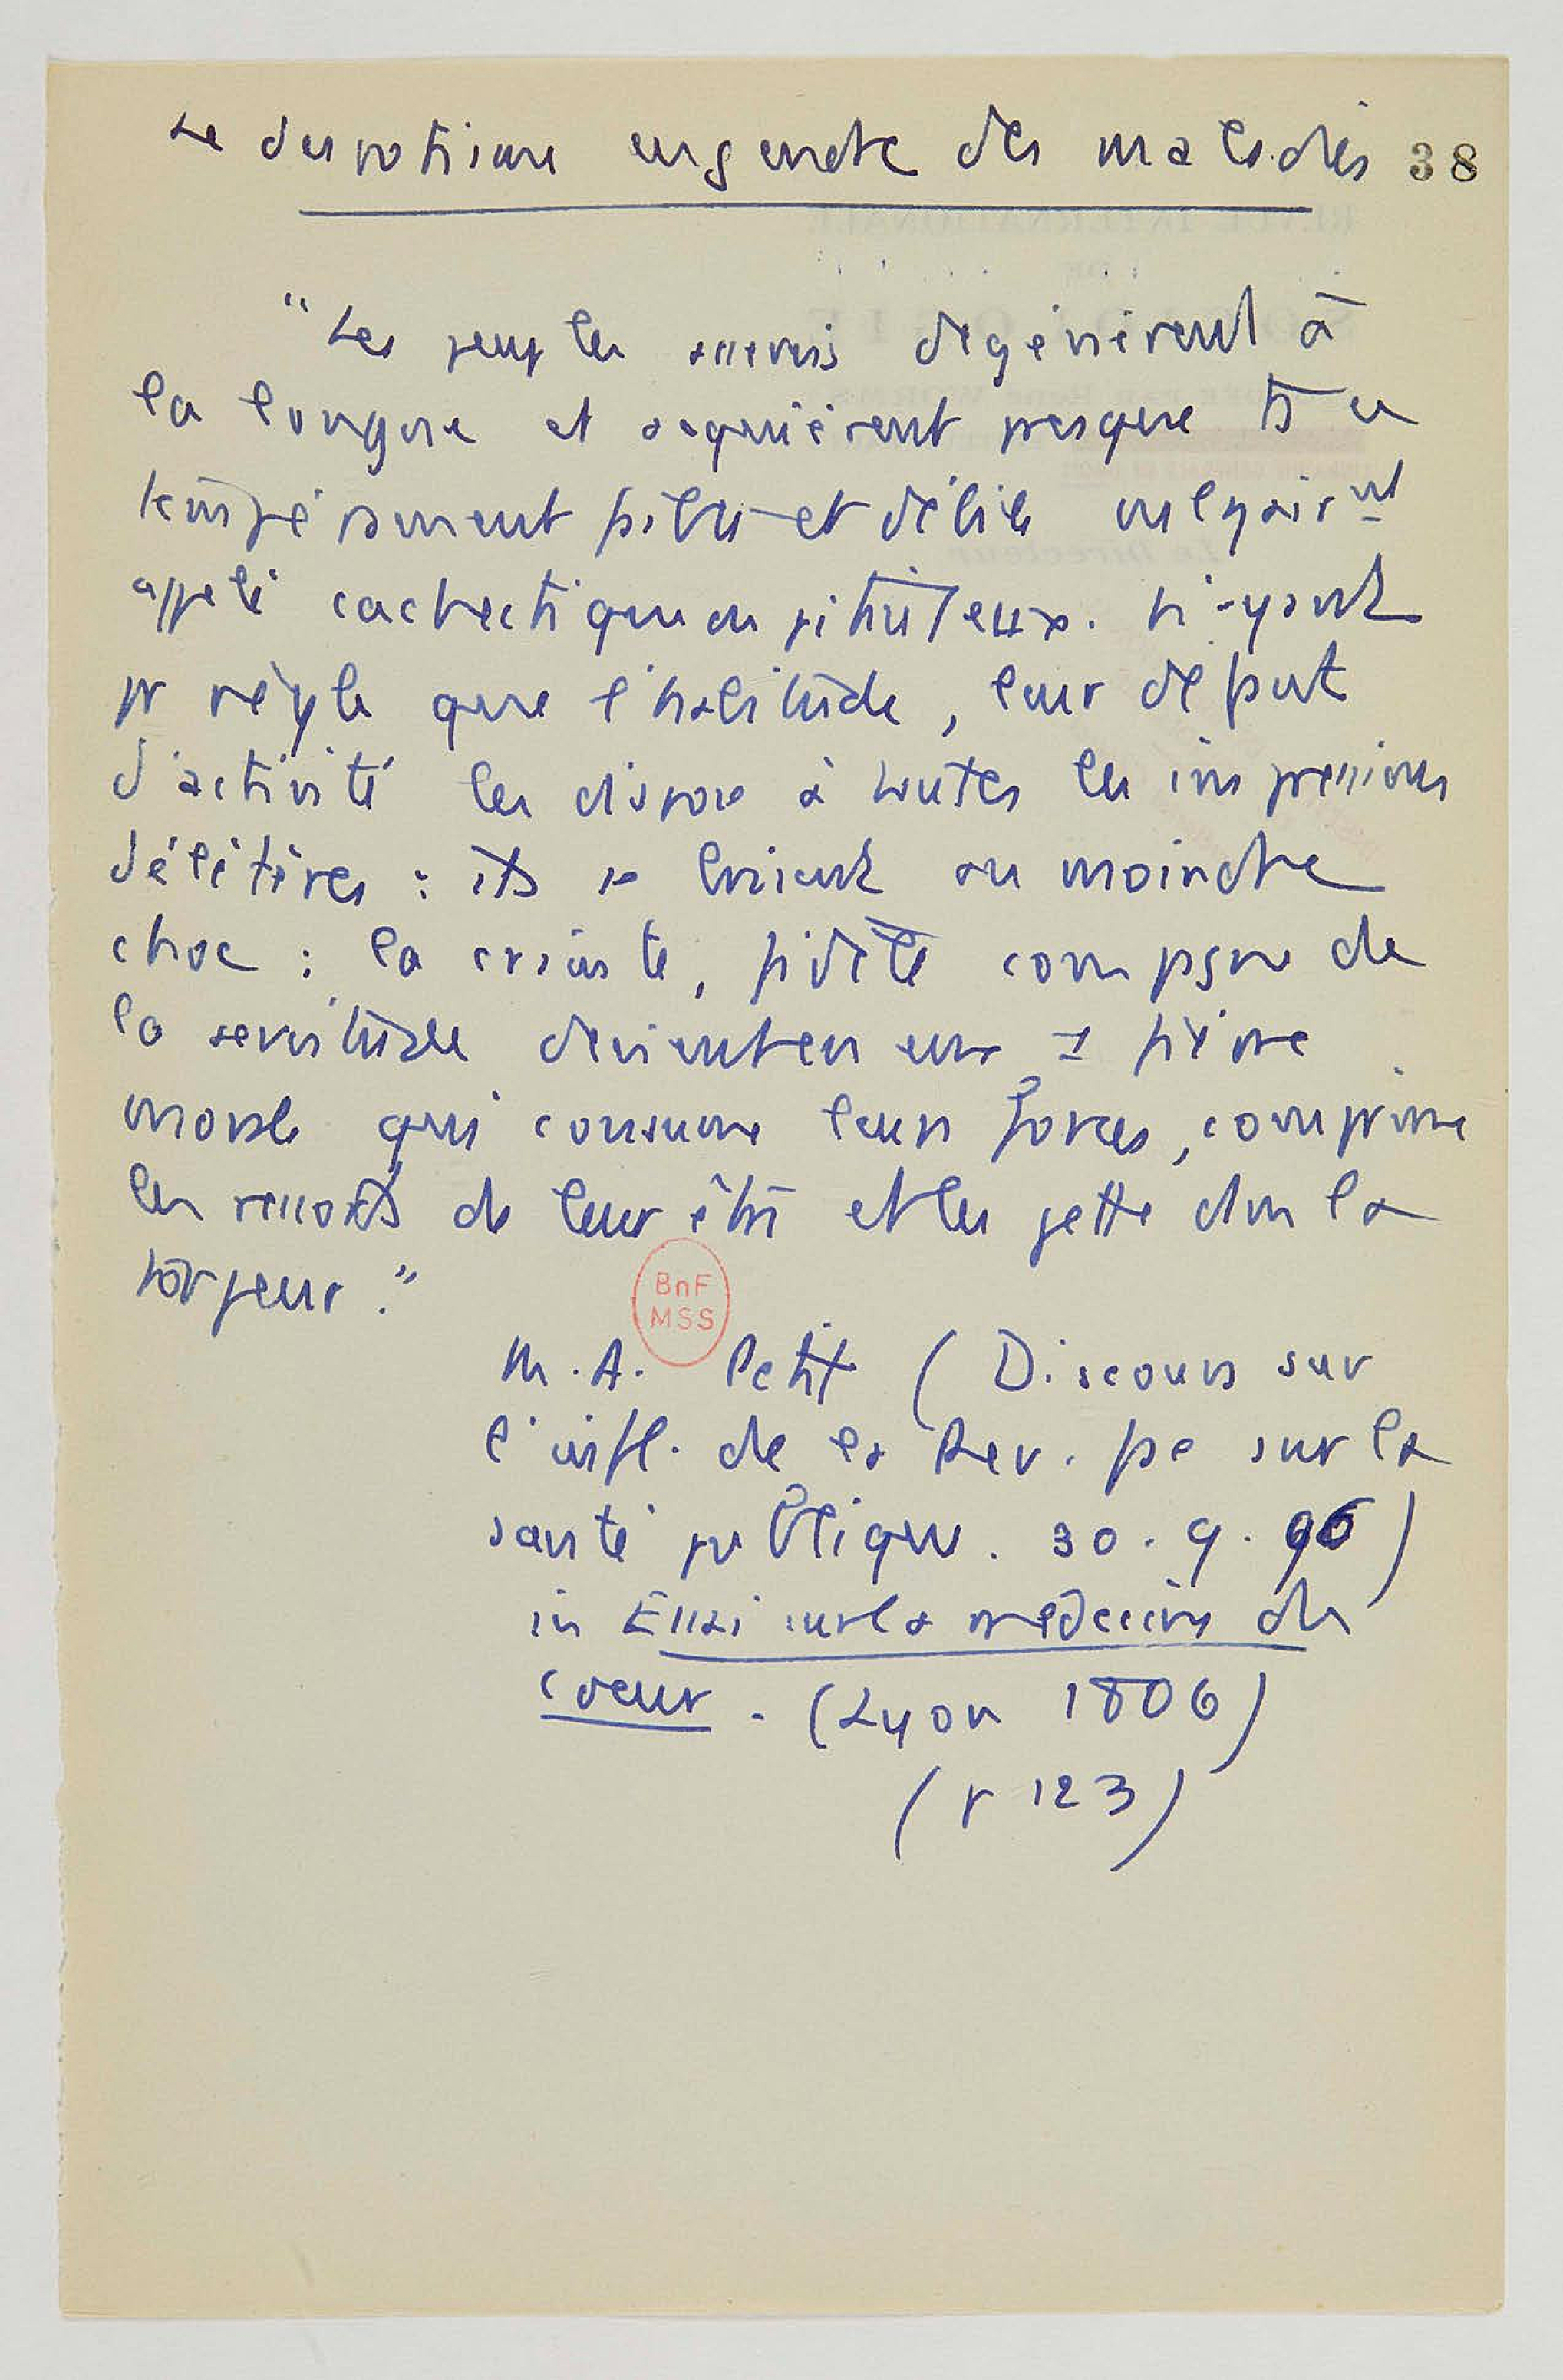 Le despotisme engendre des maladies 38
"Les peuples asservis dégénèrent à
la longue et acquièrent presque ts ce
tempérament faible et débile vulgairnt
appelé cachectique ou pituiteux. N'ayant
pr règle que l'habitude, leur défaut
d'activité les dispose à toutes les impressions
délétères : ils se brisent au moindre
choc : la crainte, fidèle compagne de
la servitude devient en eux 1 fièvre
morale qui consume leurs forces, comprime
les ressorts de leur être et les jette dans la
torpeur."
BnF
MSS
M. A. Petit (Discours sur
l'infl. de la Rev. fse sur la
santé publique. 30. 9. 96)
in Essai sur la médecine du
coeur. (Lyon 1806)
(p 123)